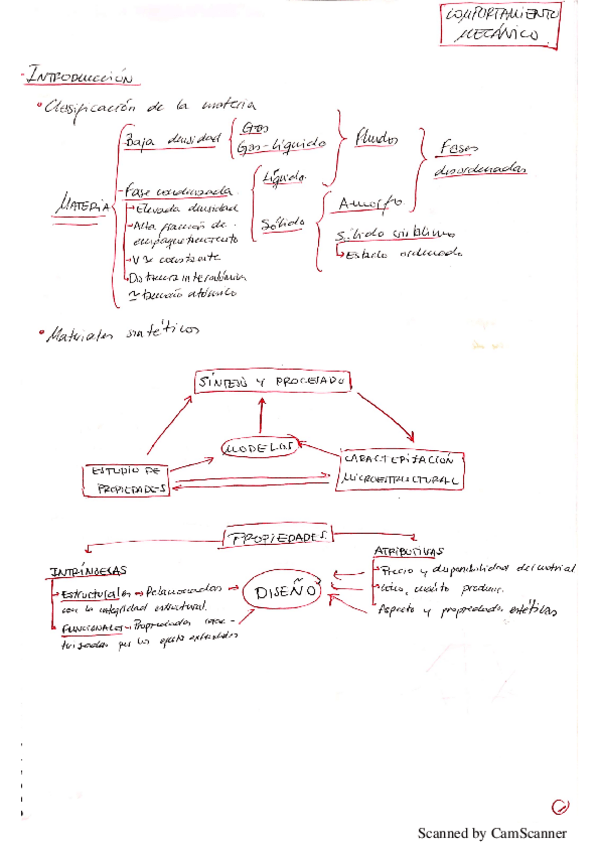 COMPORTAMIENTO
MECÁNICO.
INTRODUCCIÓN
Clasificación de la materia
MATERIA
Baja densidad
Gas
Gas-Líquido
Fluidos
Fases
desordenadas
Fase condensada
Elevada densidad
Alta fracción de
empaquetamiento
V ≈ constante
Distancia interatómica
≈ tamaño atómico
Líquido
Sólido
Amorfo
Sólido cristalino
Estado ordenado
Materiales sintéticos
SÍNTESIS Y PROCESADO
MODELOS
ESTUDIO DE
PROPIEDADES
CARACTERIZACIÓN
MICROESTRUCTURAL
PROPIEDADES
INTRÍNSECAS
Estructurales → Relacionadas
con la integridad estructural.
FUNCIONALES → Propiedades
que los
DISEÑO
ATRIBUTIVAS
Precio y disponibilidad del material
producir.
Aspecto y propiedades estéticas
Scanned by CamScanner